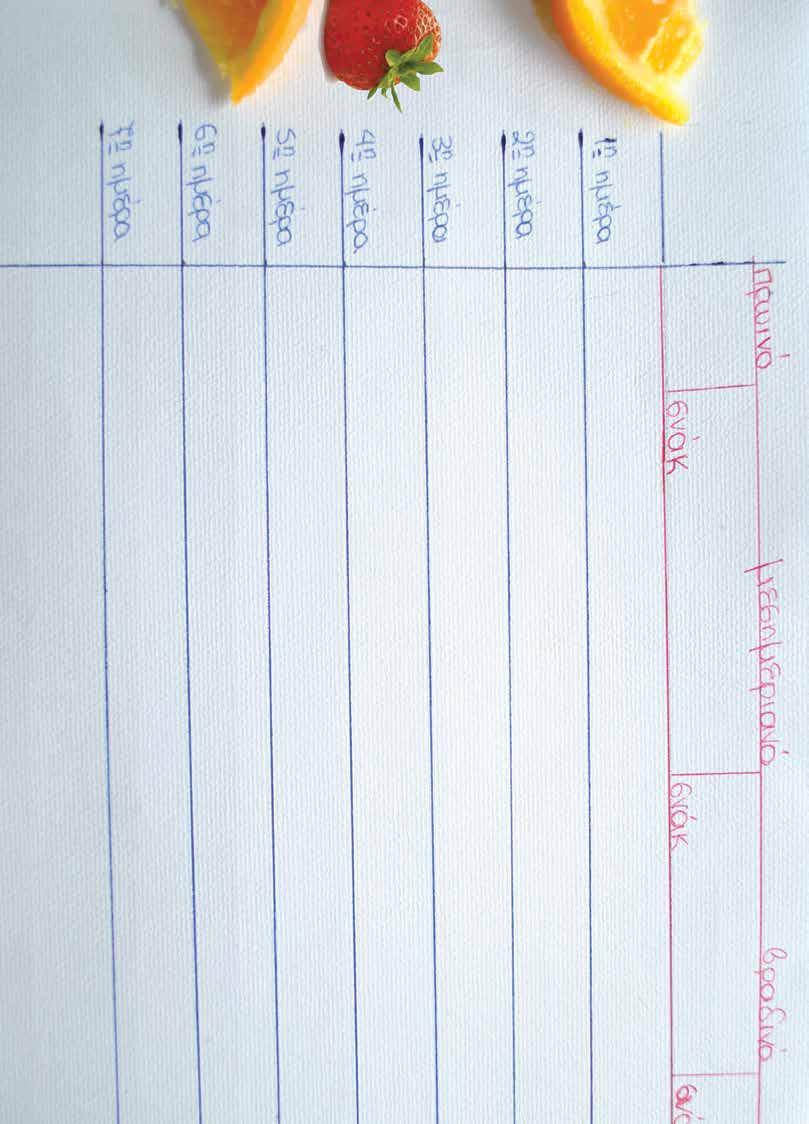 πρωινό μεσημεριανό βραδινό
σνάκ σνάκ
1η ημέρα
2η ημέρα
3η ημέρα
4η ημέρα
5η ημέρα
6η ημέρα
7η ημέρα